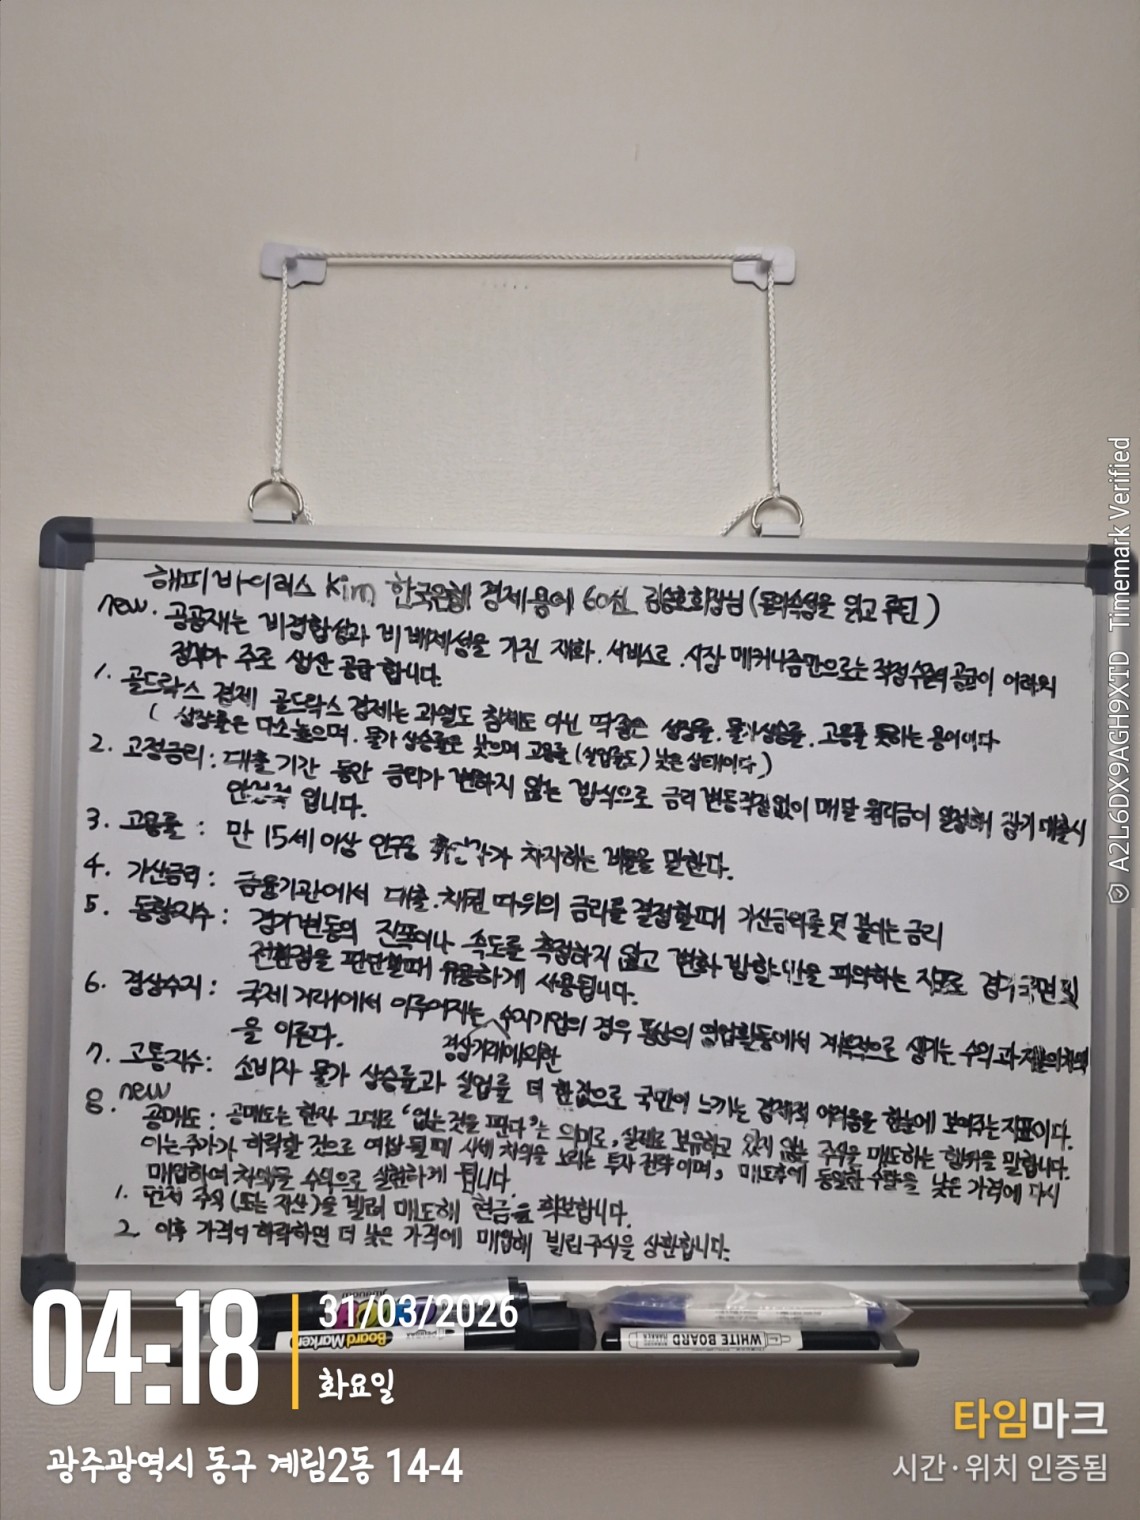 해피바이러스 Kim 한국은행 경제용어 60선 김승호회장님 (돈의속성을 읽고 루틴)
new. 공공재는 비경합성과 비배제성을 가진 재화. 서비스로. 시장 메커니즘만으로는 적정수준의 공급이 어려워
정부가 주로 생산 공급 합니다.
1. 골드락스 경제 골드락스 경제는 과열도 침체도 아닌 딱좋은 성장율. 물가상승률. 고용률 뜻하는 용어이다
( 성장률은 다소높으며. 물가 상승률은 낮으며 고용률 (실업률도) 낮은 상태이다)
2. 고정금리 : 대출기간 동안 금리가 변하지 않는 방식으로 금리 변동걱정없이 매달 원리금이 일정해 장기대출시
안전적 입니다.
3. 고용률 : 만 15세이상 인구중 가 차지하는 비율을 말한다.
4. 가산금리 : 금융기관에서 대출.채권 따위의 금리를 결정할때 가산금리를 덧 붙이는 금리
5. 동행지수 : 경기변동의 진폭이나 속도를 측정하지 않고 변화 방향만을 파악하는 지표로 경기국면 및
전환점을 판단할때 유용하게 사용됩니다.
6. 경상수지 : 국제거래에서 이루어지는 수지기업의 경우 통상의 영업활동에서 계속적으로 생기는 수익과 지출의차액
경상거래에의한
을 이른다.
7. 고통지수: 소비자 물가 상승률과 실업률 더한값으로 국민이 느끼는 경제적 어려움을 한눈에 보여주는지표이다.
8. new
공매도 : 공매도는 한자 그대로 "없는것을 판다"는 의미로, 실제로 보유하고 있지 않는 주식을 매도하는 행위을 말합니다.
이는주가가 하락할 것으로 예상 될때 시세 차익을 노리는 투자 전략이며, 매도후에 동일한 수량을 낮은 가격에 다시
매입하여 차익을 수익으로 실현하게 됩니다.
1. 먼저 주식 (또는 자산)을 빌려 매도해 현금을 확보합니다.
2. 이후 가격이 하락하면 더 낮은 가격에 매입해 빌린주식을 상환합니다.
Board Marker
WHITE BOARD
04:18
31/03/2026
화요일
광주광역시 동구 계림2동 14-4
타임마크
시간·위치 인증됨
A2L6DX9AGH9XTD Timemark Verified